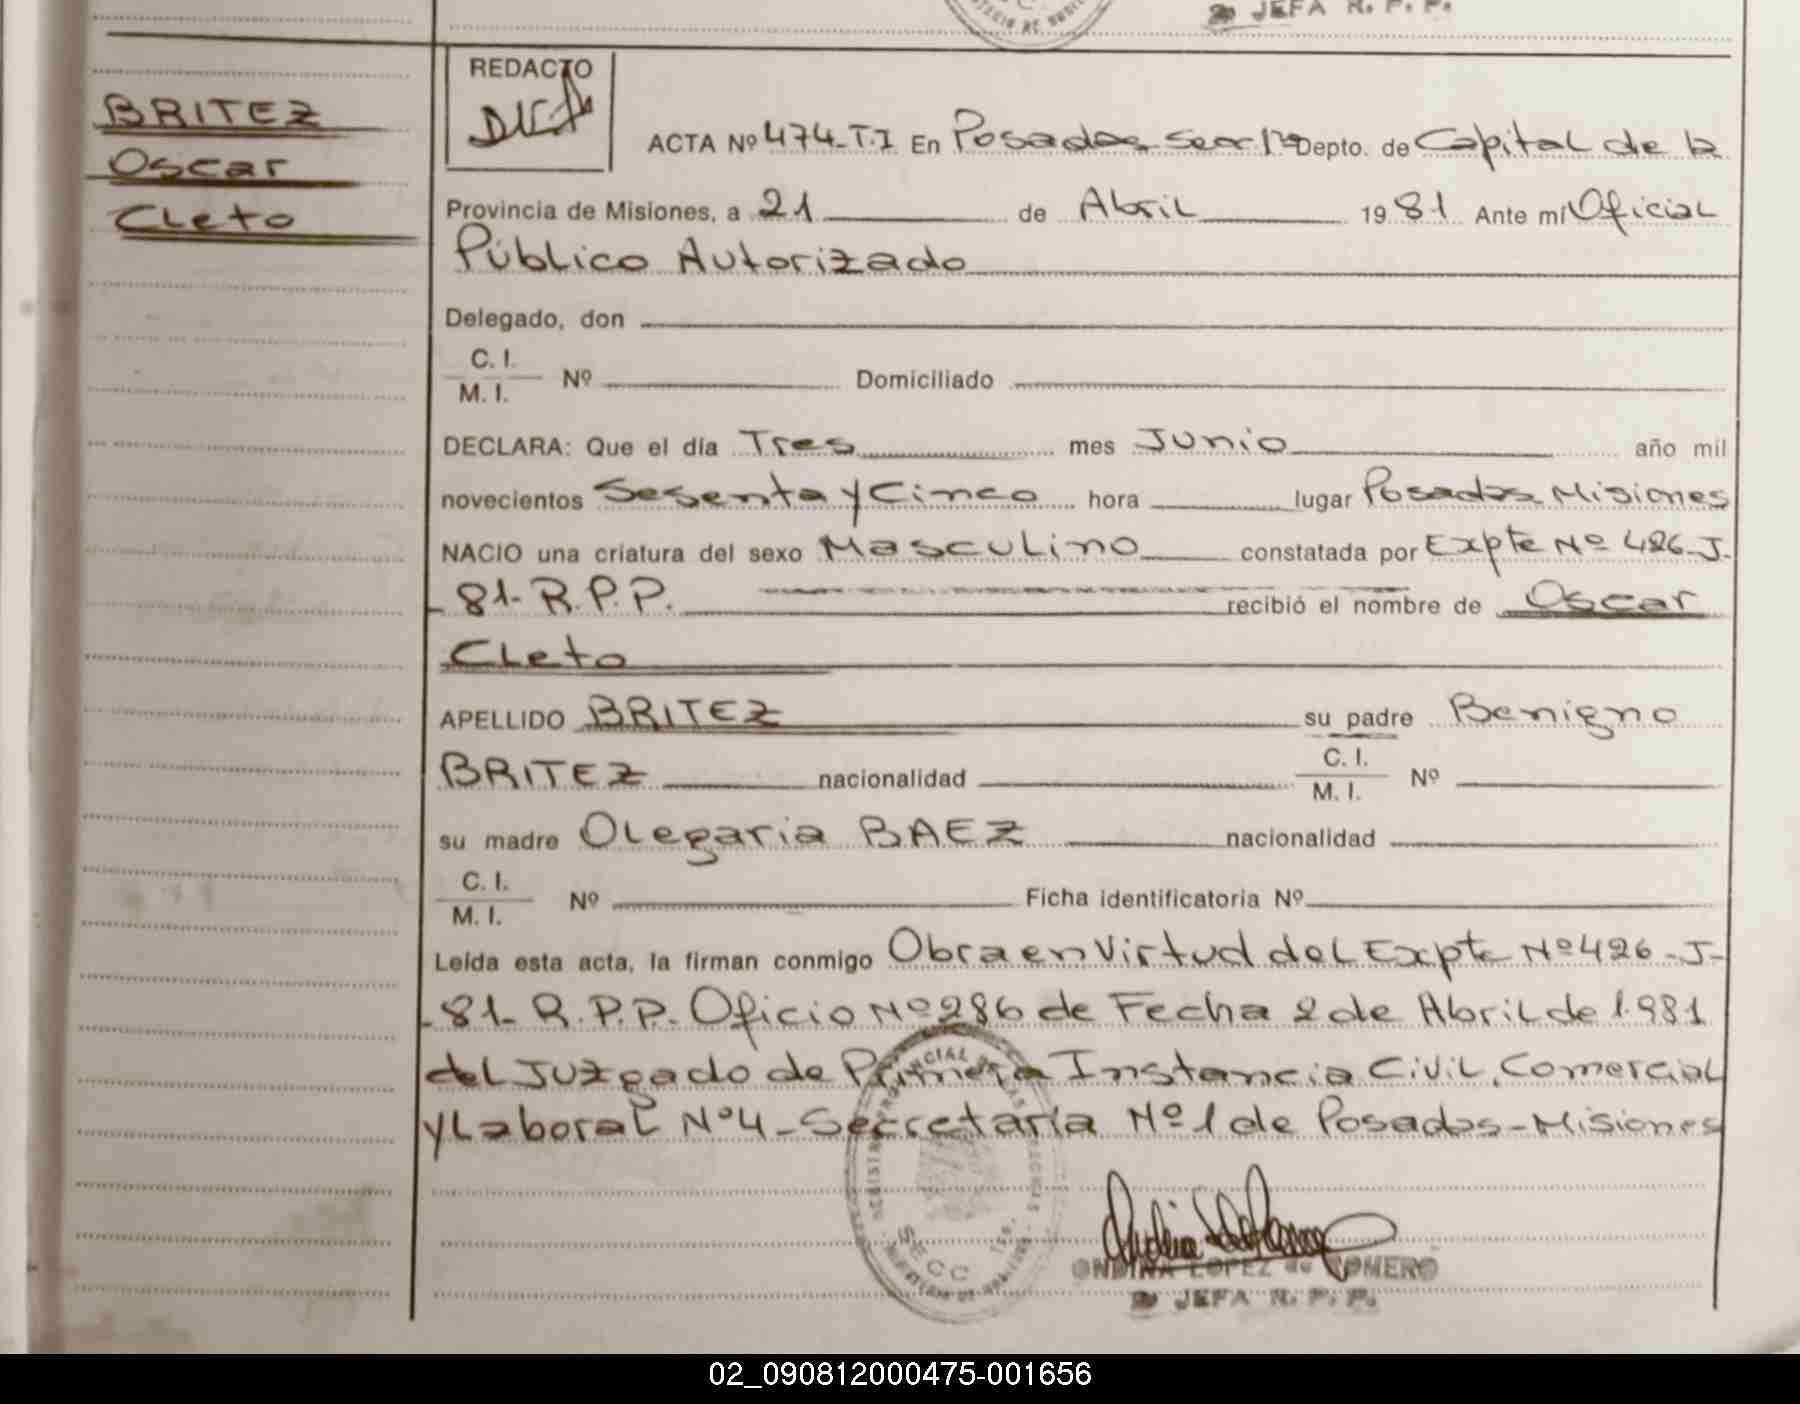 JEFA R. P. P.
BRITEZ
Oscar
Cleto
REDACTO
ACTA Nº 474-T.I En Posadas Secc 1ª Depto. de Capital de la
Provincia de Misiones, a 21 de Abril 1981 Ante mí Oficial
Público Autorizado
Delegado, don
C. I.
M. I. Nº Domiciliado
DECLARA: Que el día Tres mes Junio año mil
novecientos Sesenta y Cinco hora lugar Posadas Misiones
NACIO una criatura del sexo Masculino constatada por Expte Nº 426-J-
-81-R.P.P. recibió el nombre de Oscar
Cleto
APELLIDO BRITEZ su padre Benigno
BRITEZ nacionalidad C. I. M. I. Nº
su madre Olegaria BAEZ nacionalidad
C. I.
M. I. Nº Ficha identificatoria Nº
Leída esta acta, la firman conmigo Obra en Virtud del Expte Nº 426-J-
-81-R.P.P. Oficio Nº 286 de Fecha 2 de Abril de 1.981
del Juzgado de Primera Instancia Civil, Comercial
y Laboral Nº 4-Secretaría Nº 1 de Posadas-Misiones
SECC
ONDINA LOPEZ de ROMERO
JEFA R. P. P.
02_090812000475-001656